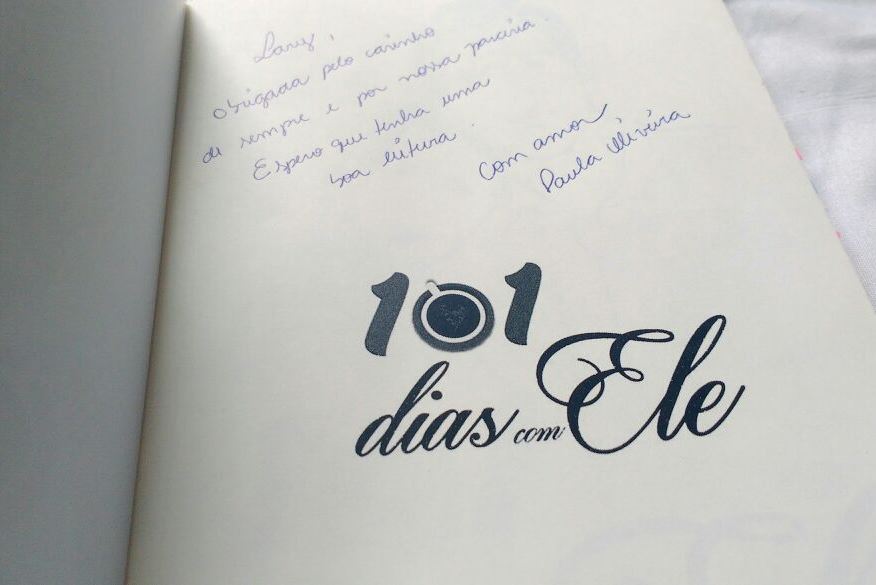 Lary,
Obrigada pelo carinho
de sempre e por nossa parceria.
Espero que tenha uma
boa leitura.
Com amor
Paula Oliveira
101
dias com Ele